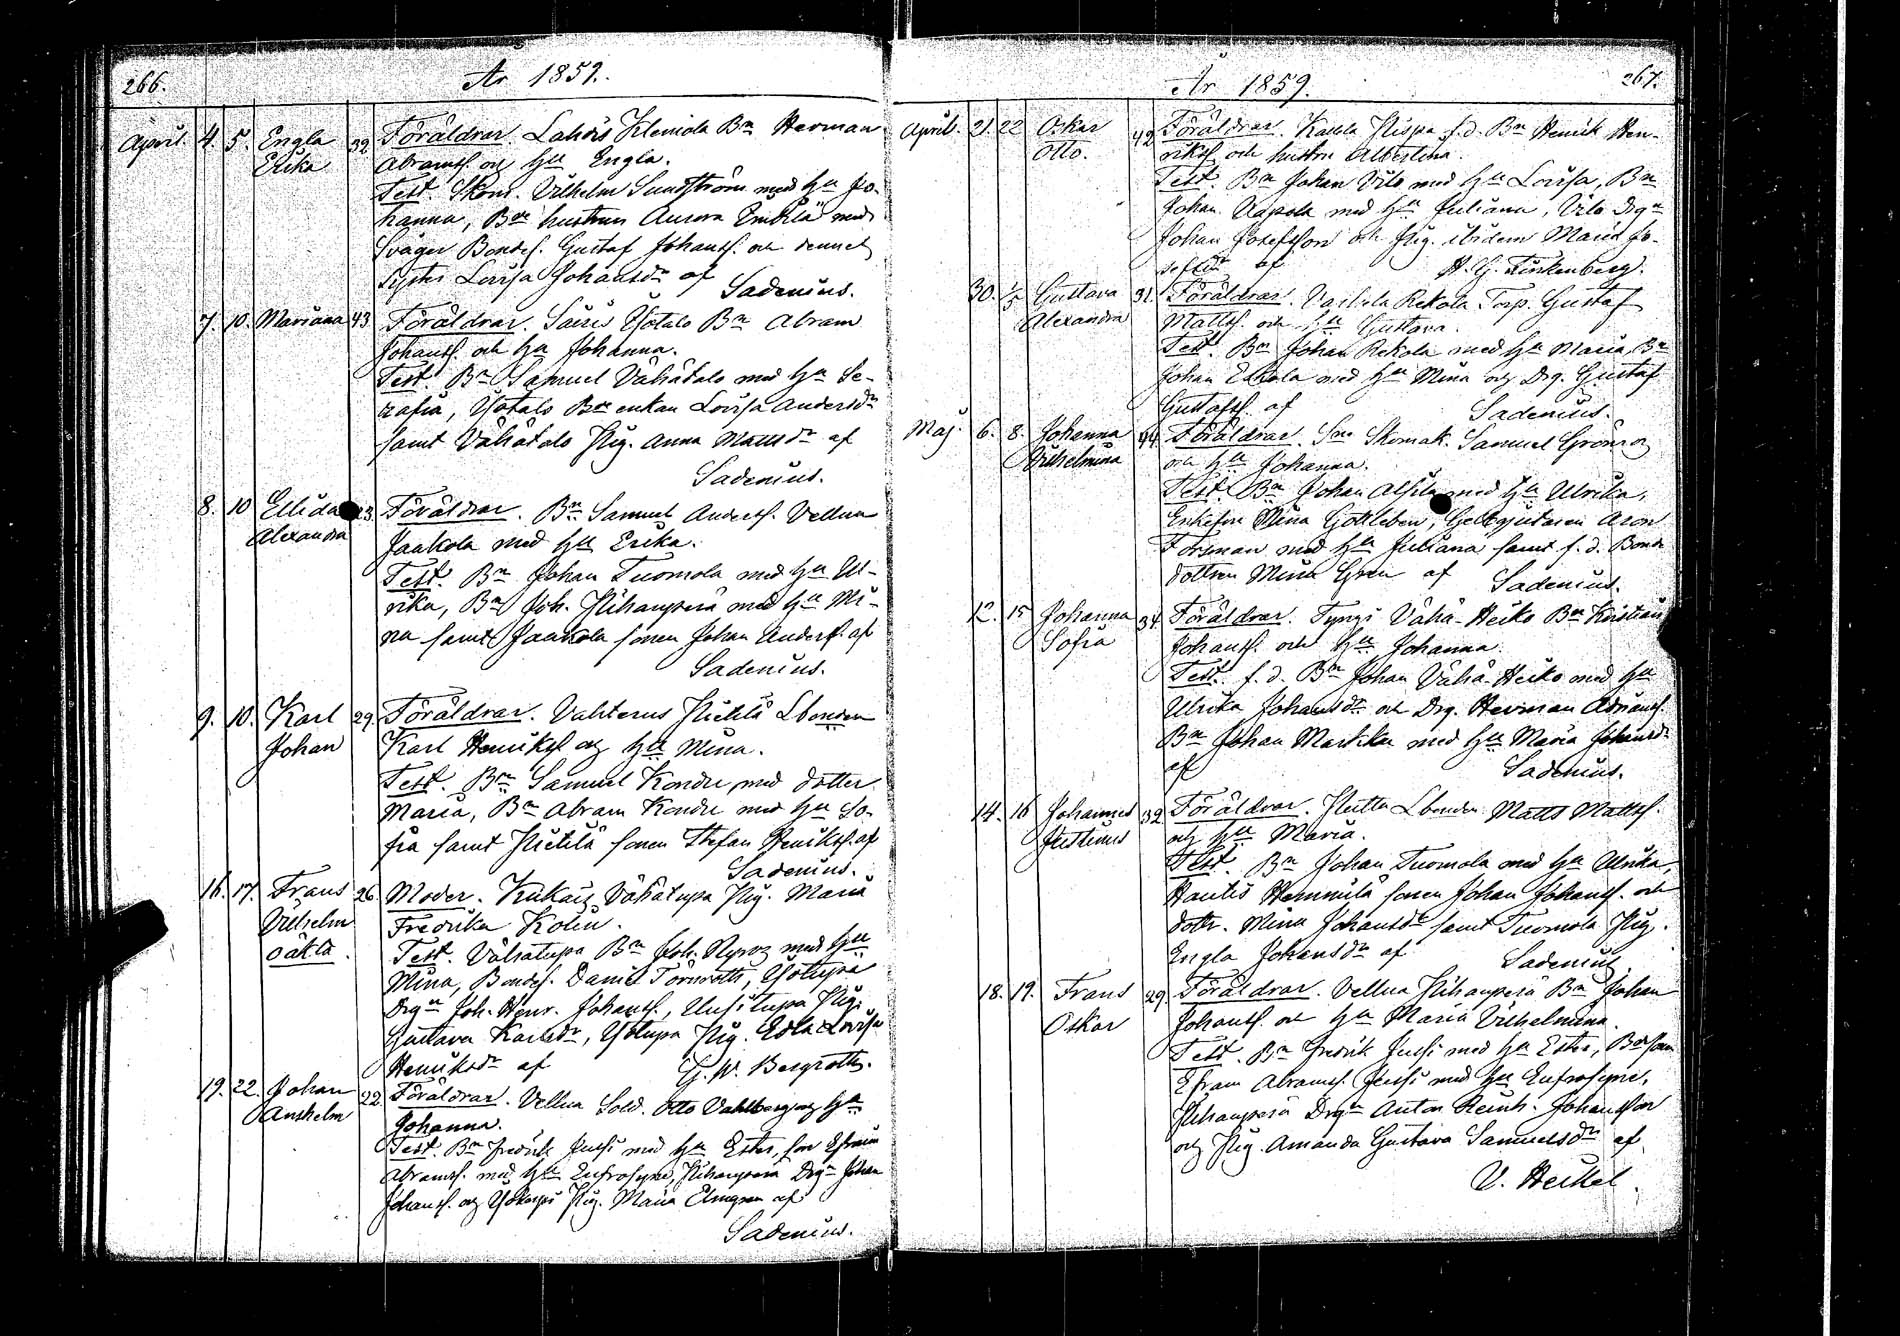 266. År 1859.
April. 4. 5. Engla 32. Föräldrar. Lahdis Klemola Bn Herman
Erika Abramsf. og hu Engla.
Test. Skom. Vilhelm Sundström med hu Jo-
hanna, Bde hustrun Aurora med
Svåger Bondes. Gustaf Johansf. och dennes
syster Lovisa Johansdr af
Sadenius.
7. 10. Mariana 43 Föräldrar. Säiris Ylötalo Bn Abram
Johansf. och hu Johanna.
Test. Bn Samuel Vähätalo med hu Se-
rafia, Ylötalo Bde enkan Lovisa Andersdr
samt Vähätalo Pig. Anna Mattsdr af
Sadenius.
8. 10 Ellida 23 Föräldrar. Bn Samuel Andersf. Vellua
Alexandra Jaakola med hu Erika.
Test. Bn Johan Tuomola med hu Ul-
rika, Bn Joh. Pihanperä med hu Mi-
na samt Jaakola sonen Johan Andersf. af
Sadenius.
9. 10. Karl 29. Föräldrar. Vahterus Pietilä Lbonden
Johan Karl Henriksf og hu Mina.
Test. Bn Samuel Kondre med dotter
Maria, Bn Abram Kondre med hu So-
fia samt Pietilä sonen Stefan Henriksf. af
Sadenius.
16. 17. Frans 26. Moder. Kukais Vähätupa Pig. Maria
Vilhelm Fredrika Kolin.
oäkta. Test. Vähätupa Bn Joh. med hu
Mina, Bondes. Daniel Törnroth, Ylötupa
Drgn Joh. Henr. Johansf., Uusitupa Pig.
Gustava Karlsdr, Ylötupa Pig. Edla Lovisa
Henriksdr af G. W. Bergroth.
19. 22. Johan 22. Föräldrar. Vellua Sold. Otto Vahlberg og hu
Anshelm Johanna.
Test. Bn Fredrik Jussi med hu Ester, son Efraim
Abramsf. med hu Eufrosyne, Pihanperä Drgn Johan
Johansf. og Pig. Maria Elmgren af
Sadenius.
År 1859. 267.
April. 21. 22 Oskar 42 Föräldrar. Kaukola Pispa f.d. Bn Henrik Hen-
Otto. riksf. och hustru Albertina.
Test. Bn Johan Vilo med hu Lovisa, Bn
Johan Uapola med hu Juliana, Vilo Drgn
Johan Josefsson och Pig. ibidem Maria Jo-
sefsdr af H. G. Finkenberg.
30. 1/5 Gustava 31. Föräldrar. Rekola Torp. Gustaf
Alexandra Mattsf. och hu Gustava.
Test. Bn Johan Rekola med hu Maria, Bn
Johan Erkola med hu Mina og Drg. Gustaf
Gustafsf. af Sadenius.
Maj. 6. 8. Johanna 44. Föräldrar. Skomak. Samuel Grönroos
Vilhelmina och hu Johanna.
Test. Bn Johan Alsila med hu Ulrika,
Enkefru Mina Gottleben, Gelbgjutaren Aron
Forsman med hu Juliana samt f. d. Bonde
dottren Mina Gren af Sadenius.
12. 15 Johanna 34. Föräldrar. Tyngi Vähä-Heiko Bn Kristian
Sofia Johansf. och hu Johanna.
Test. f. d. Bn Johan Vähä-Heiko med hu
Ulrika Johansdr och Drg. Herman Adriansf.
Bn Johan Markku med hu Maria Johansdr
af Sadenius.
14. 16 Johannes 32 Föräldrar. Lbonden Matts Mattsf.
Justinus og hu Maria.
Test. Bn Johan Tuomola med hu Ulrika,
Hautis Hemmilä sonen Johan Johansf. och
dottr. Mina Johansdr samt Tuomola Pig.
Engla Johansdr af Sadenius
18. 19. Frans 29. Föräldrar. Vellua Pihanperä Bn Johan
Oskar Johansf. och hu Maria Vilhelmina.
Test. Bn Fredrik Jussi med hu Ester, Bdeson
Efram Abramsf. Jussi med hu Eufrosyne,
Pihanperä Drgn Anton Reinh. Johansson
og Pig. Amanda Gustava Samuelsdr af
V. Heikel.